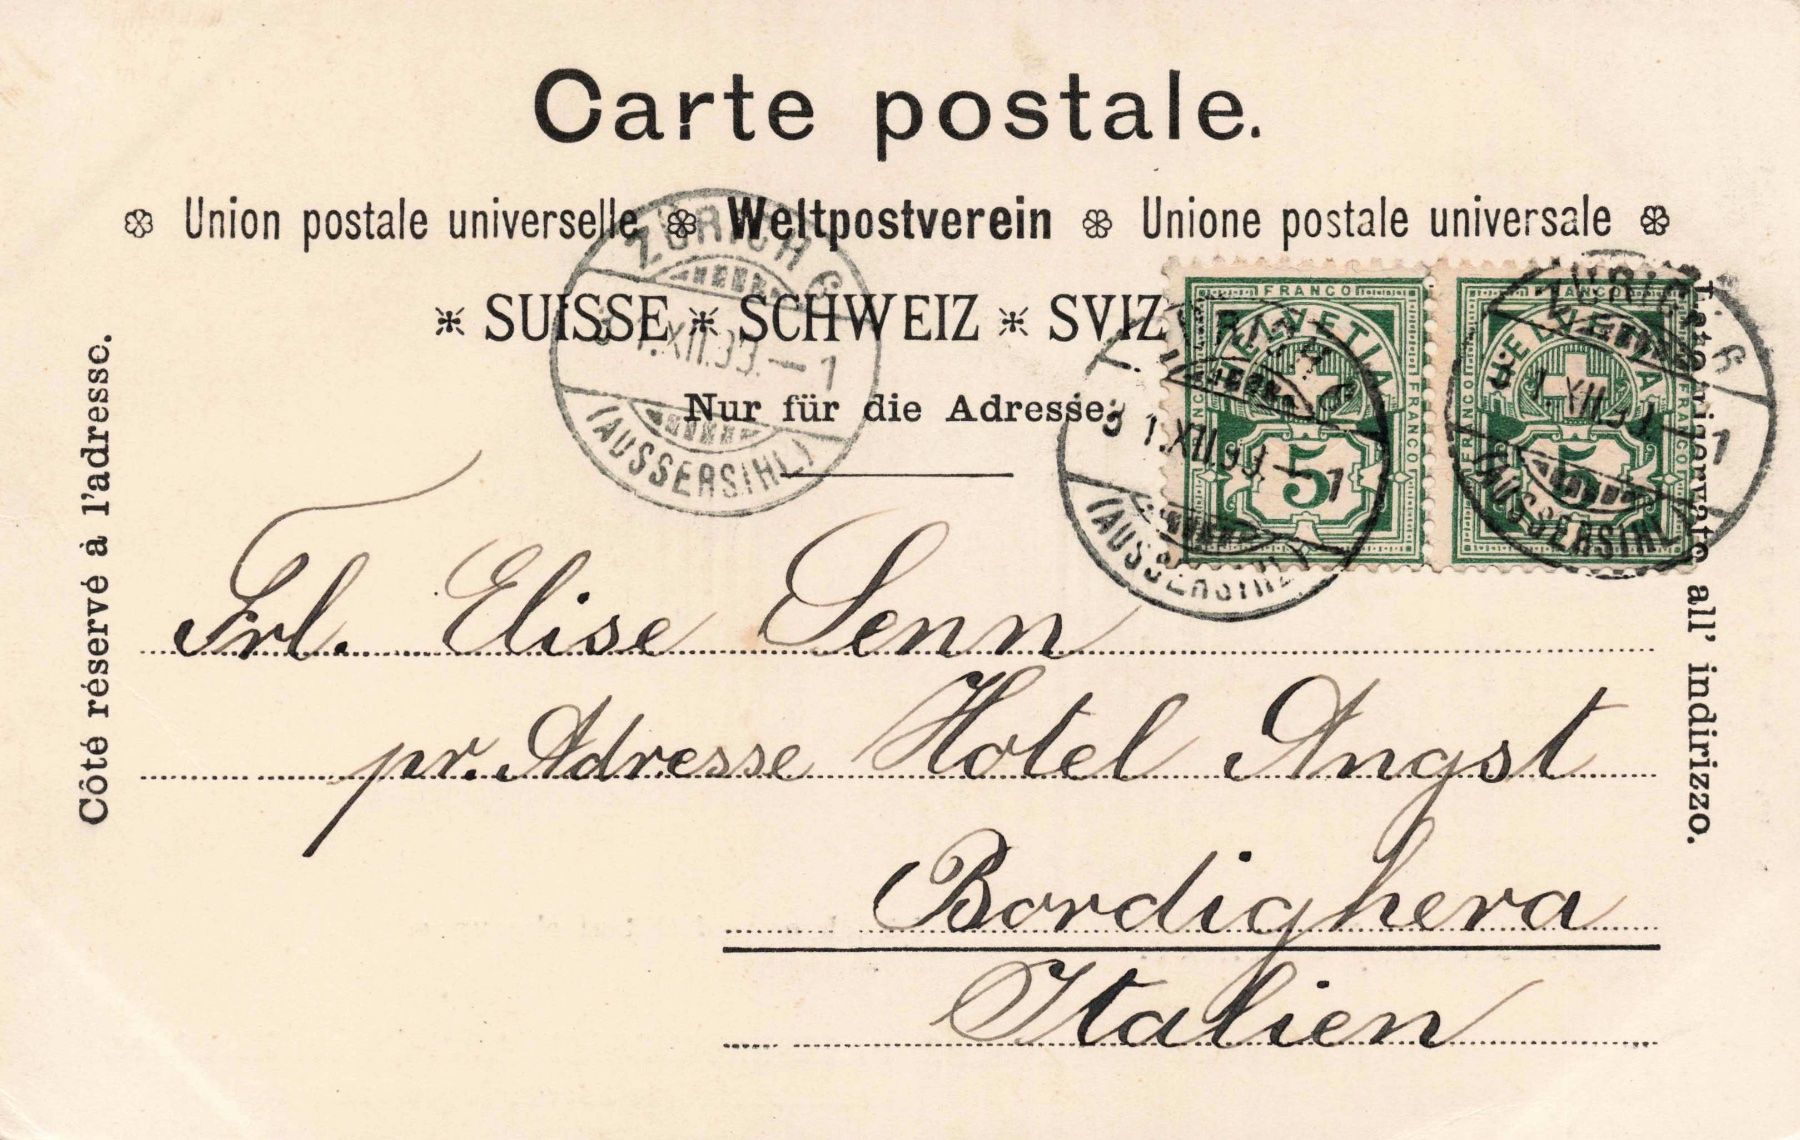 Carte postale.
Union postale universelle Weltpostverein Unione postale universale
SUISSE SCHWEIZ SVIZ
Nur für die Adresse.
Côté réservé à l'adresse.
Lato riservato all' indirizzo.
ZÜRICH 6
31.XII.99.-1
(AUSSERSIHL)
ZÜRICH 6
31.XII.99.-1
(AUSSERSIHL)
ZÜRICH 6
31.XII.99.-1
(AUSSERSIHL)
FRANCO
HELVETIA
FRANCO
FRANCO
5
FRANCO
HELVETIA
FRANCO
FRANCO
5
Frl. Elise Senn
pr. Adresse Hotel Angst
Bordighera
Italien